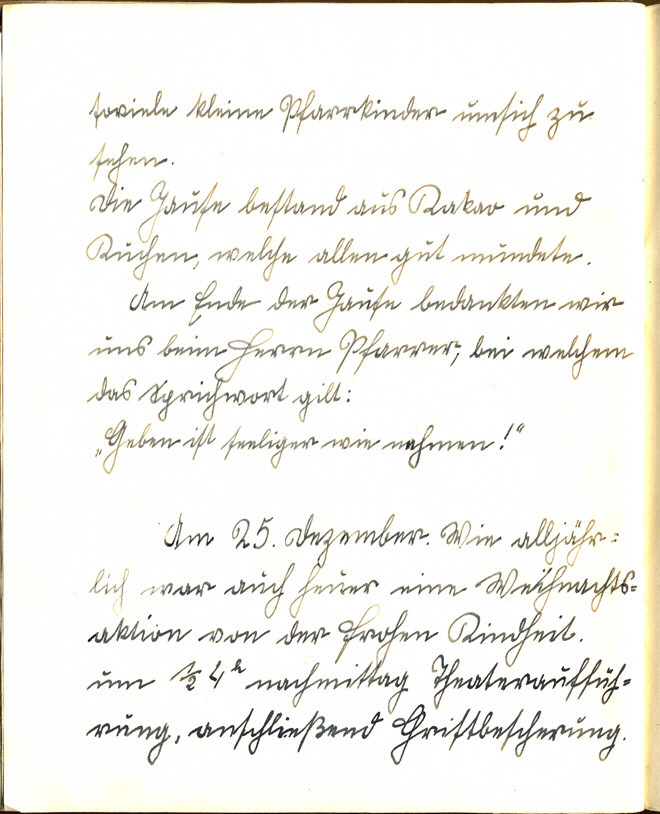 soviele kleine Pfarrkinder umsich zu
sehen.
Die Jause bestand aus Kakao und
Kuchen, welche allen gut mundete.
Am Ende der Jause bedankten wir
uns beim Herrn Pfarrer, bei welchem
das Sprichwort gilt:
„Geben ist seeliger wie nehmen!"
Am 25. Dezember. Wie alljähr=
lich war auch heuer eine Weihnachts=
aktion von der frohen Kindheit.
um ½ 4 h nachmittag Theaterauffüh=
rung, anschließend Christbescherung.